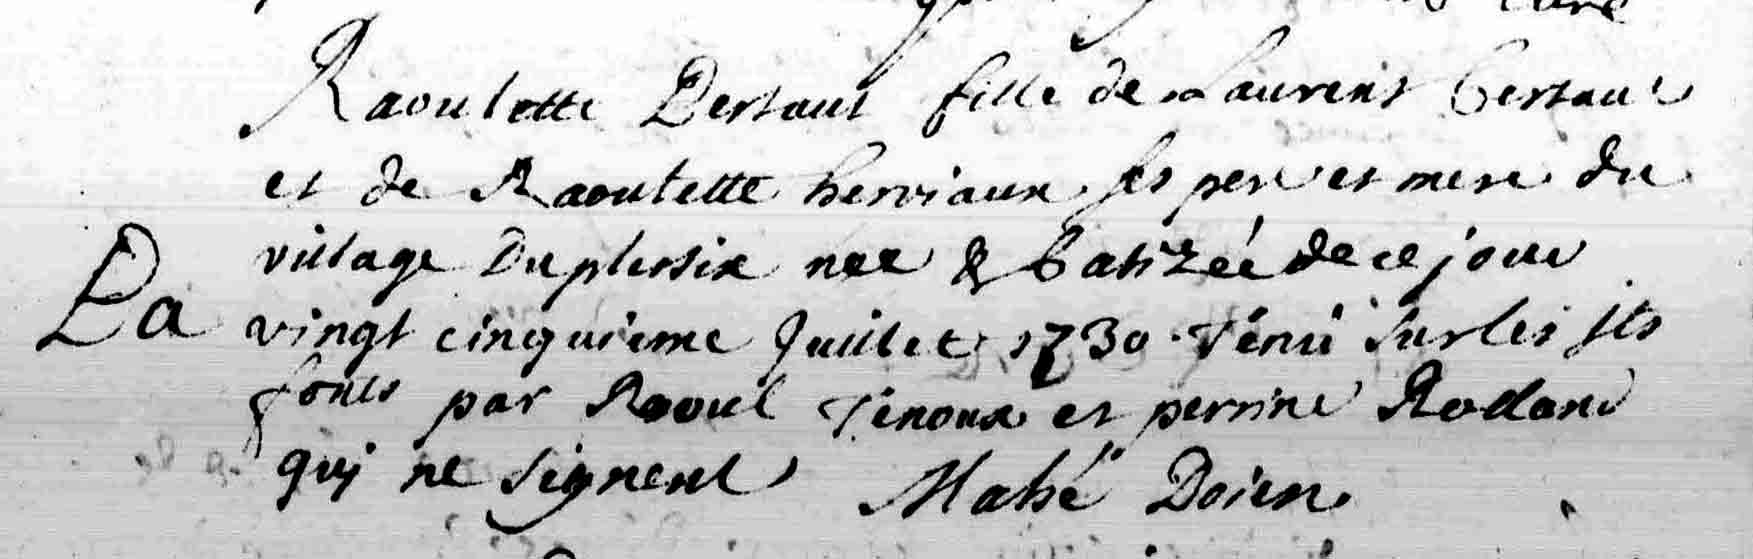 curé
Raoulette Bertaut fille de Laurent Bertaut
et de Raoulette herviaux ses pere et mere du
village Duplessix nee & batizéé de ce jour
Pa vingt cinquieme Juillet 1730 Tenu sur les sts
fonts par Raoul Tenoux et perrine Rolland
quy ne signent Mahé Doien